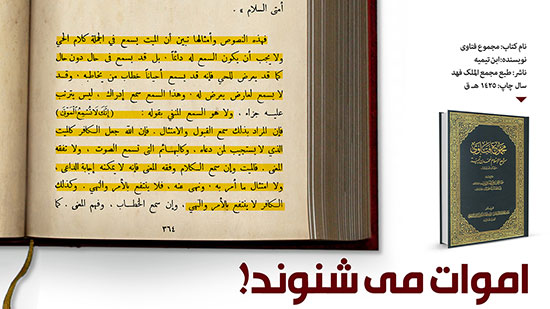 أمتى السلام » .
فهذه النصوص وأمثالها تبين أن الميت يسمع في الجملة كلام الحي
ولا يجب أن يكون السمع له دائماً ، بل قد يسمع في حال دون حال
كما قد يعرض للحي فإنه قد يسمع أحياناً خطاب من يخاطبه ، وقد
لا يسمع لعارض يعرض له ، وهذا السمع سمع إدراك ، ليس يترتب
عليه جزاء ، ولا هو السمع المنفي بقوله : ( إِنَّكَ لَا تُسْمِعُ الْمَوْتَىٰ )
فإن المراد بذلك سمع القبول والامتثال . فإن الله جعل الكافر كالميت
الذي لا يستجيب لمن دعاه ، وكالبهائم التي تسمع الصوت ، ولا تفقه
المعنى . فالميت وإن سمع الكلام وفقه المعنى فإنه لا يمكنه إجابة الداعي ،
ولا امتثال ما أمر به ، ونهي عنه ، فلا ينتفع بالأمر والنهي . وكذلك
الكافر لا ينتفع بالأمر والنهي ، وإن سمع الخطاب ، وفهم المعنى . كما
٣٦٤
نام کتاب: مجموع فتاوی
نویسنده: ابن تیمیه
ناشر: طبع مجمع الملک فهد
سال چاپ: ۱۴۲۵ هـ ق
اموات می شنوند!